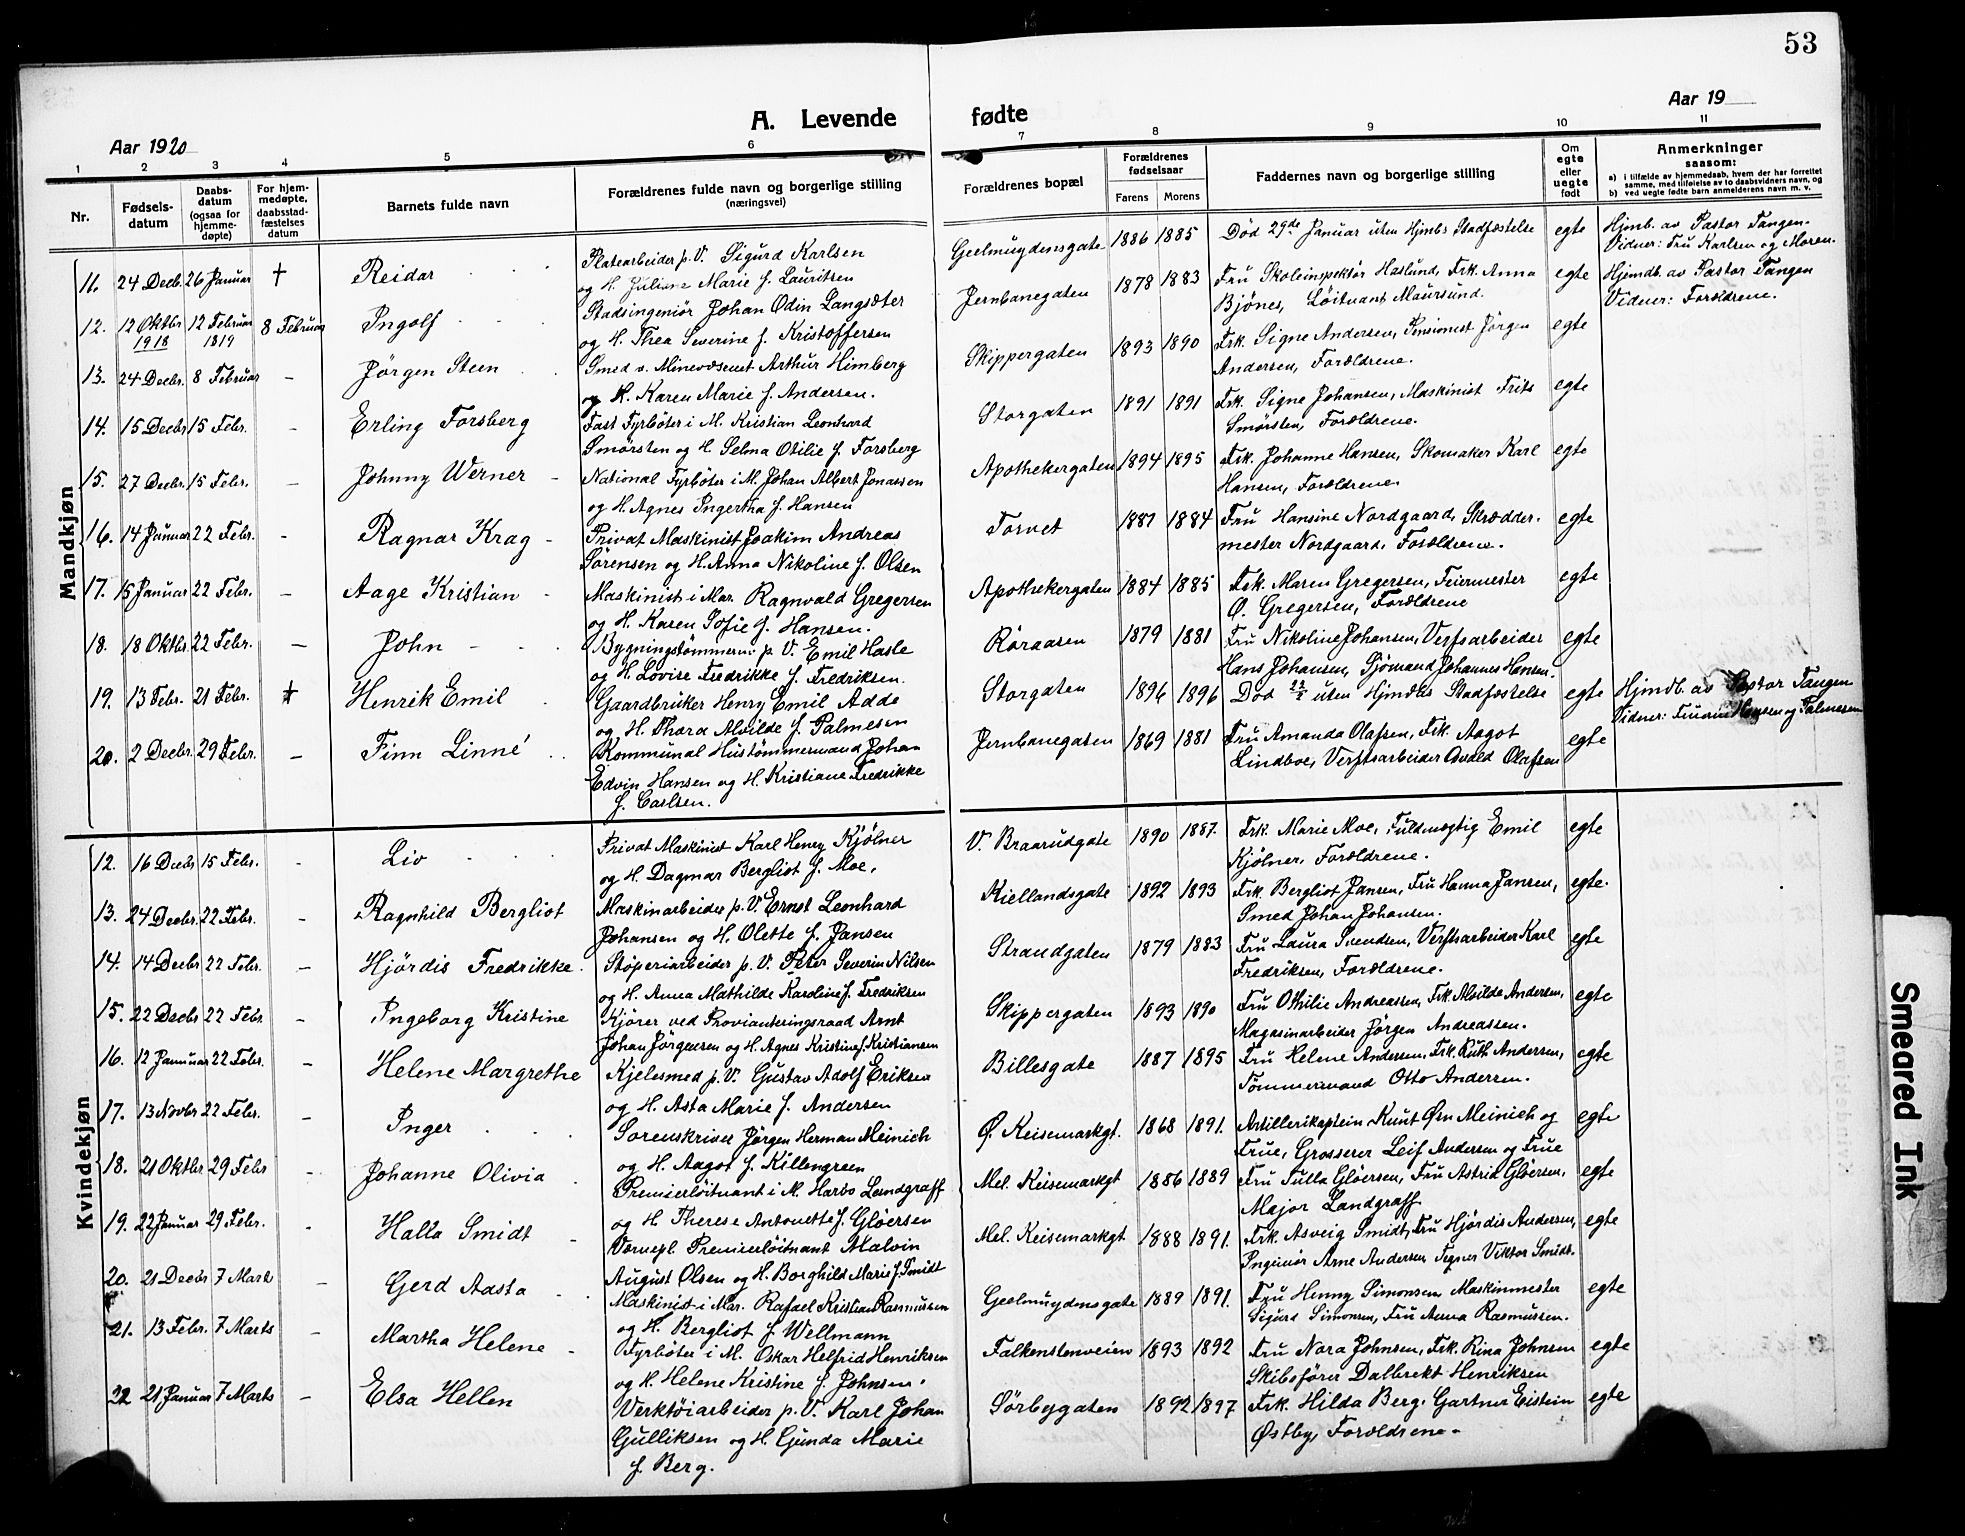 53
Aar 1920
A. Levende fødte
Aar 19
1 2 3 4 5 6 7 8 9 10 11
Nr.
Fødsels-
datum
Daabs-
datum
(ogsaa for
hjemme-
døpte)
For hjem-
medøpte,
daabsstad-
fæstelses
datum
Barnets fulde navn
Forældrenes fulde navn og borgerlige stilling
(næringsvei)
Forældrenes bopæl
Forældrenes
fødselsaar
Farens Morens
Faddernes navn og borgerlige stilling
Om
egte
eller
uegte
født
Anmerkninger
saasom:
a) i tilfælde av hjemmedaab, hvem der har forrettet
samme, med tilføielse av to daabsvidners navn, og
b) ved uegte fødte barn anmelderens navn m. v.
Mandkjøn
11. 24 Decb. 26 Januar † Reidar
Platearbeider p. V. Sigurd Karlsen
og H. Juliane Marie f. Lauritsen
Geelmuydensgate 1886 1885 Død 29de Januar uten Hjmbs Stadfæstelse egte
Hjmb. av Pastor Tangen.
Vidner: Fru Karlsen og Moren.
12. 12 Oktbr 1918 12 Februar 1819 8 Februar Ingolf
Stadsingeniør Johan Odin Langsæter
og H. Thea Severine f. Kristoffersen
Jernbanegaten 1878 1883 Fru Skoleinspektør Haslund, Frk. Anna
Bjønes, Løitnant Maursund. egte
Hjemdb. av Pastor Tangen
Vidner: Forældrene.
13. 24 Decbr. 8 Februar - Jørgen Steen
Smed v. Minevæsenet Arthur Himberg
og H. Karen Marie f. Andersen.
Skippergaten 1893 1890 Frk. Signe Andersen, Pensionist Jørgen
Andersen, Forældrene. egte
14. 15 Decbr 15 Febr. - Erling Forsberg
Fast Fyrbøter i M. Kristian Leonhard
Smørsten og H. Selma Otilie f. Forsberg
Storgaten 1891 1891 Frk. Signe Johansen, Maskinist Frits
Smørsten, Forældrene. egte
15. 27 Decbr. 15 Febr. - Johnny Werner
National Fyrbøter i M. Johan Albert Jonassen
og H. Agnes Ingertha f. Hansen
Apothekergaten 1894 1895 Frk. Johanne Hansen, Skomaker Karl
Hansen, Forældrene egte
16. 14 Januar 22 Febr. - Ragnar Krag
Privat Maskinist Joakim Andreas
Sørensen og H. Anna Nikoline f. Olsen
Torvet 1881 1884 Fru Hansine Nordgaard, Skrædder-
mester Nordgaard, Forældrene. egte
17. 15 Januar 22 Febr. - Aage Kristian
Maskinist i Mar. Ragnvald Gregersen
og H. Karen Sofie f. Hansen.
Apothekergaten 1884 1885 Frk. Maren Gregersen, Feiermester
Ø. Gregersen, Forældrene egte
18. 18 Oktbr. 22 Febr. - John
Bygningstømmerm. p. V. Emil Hasle
og H. Lovise Fredrikke f. Fredriksen.
Røraasen 1879 1881 Fru Nikoline Johansen, Verftsarbeider
Hans Johansen, Sjømand Johannes Hansen. egte
19. 13 Febr. 21 Febr. † Henrik Emil
Gaardbruker Henry Emil Adde
og H. Thora Alvilde f. Palmesen
Storgaten 1896 1896 Død 22/2 uten Hjmdbs Stadfæstelse egte
Hjmdb. av Pastor Tangen
Vidner: Fruerne Hansen og Palmesen
20. 2 Decbr. 29 Febr. - Finn Linné
Kommunal Hustømmermand Johan
Edvin Hansen og H. Kristiane Fredrikke
f. Carlsen.
Jernbanegaten 1869 1881 Fru Amanda Olafsen, Frk. Aagot
Lindboe, Verftsarbeider Osvald Olafsen egte
Kvindekjøn
12. 16 Decbr 15 Febr. - Liv
Privat Maskinist Karl Henry Kjølner
og H. Dagmar Bergliot f. Moe.
V. Braarudgate 1890 1887. Frk. Marie Moe, Fuldmægtig Emil
Kjølner, Forældrene. egte
13. 24 Decbr. 22 Febr. - Ragnhild Bergliot
Maskinarbeider p. V. Ernst Leonhard
Johansen og H. Olette f. Jansen
Kiellandsgate 1892 1893 Frk. Bergliot Jansen, Fru Hanna Jansen,
Smed Johan Johansen. egte.
14. 14 Decbr 22 Febr. - Hjørdis Fredrikke.
Støperiarbeider p. V. Peter Severin Nilsen
og H. Anna Mathilde Karoline f. Fredriksen
Strandgaten 1879 1883 Fru Laura Svendsen, Verftsarbeider Karl
Fredriksen, Forældrene. egte
15. 22 Decbr 22 Febr. - Ingeborg Kristine
Kjører ved Provianteringsraad Arnt
Johan Jørgensen og H. Agnes Kristine f. Kristiansen
Skippergaten 1893 1890 Fru Othilie Andreassen, Frk. Alvilde Andersen,
Magasinarbeider Jørgen Andreassen. egte
16. 12 Januar 22 Febr. - Helene Margrethe
Kjelesmed p. V. Gustav Adolf Eriksen
og H. Asta Marie f. Andersen
Billesgate 1887 1895 Fru Helene Andersen, Frk. Ruth Andersen,
Tømmermand Otto Andersen. egte
17. 13 Novbr 22 Febr. - Inger
Sorenskriver Jørgen Herman Meinich
og H. Aagot f. Killengreen
Ø. Keisemarkgt. 1868 1891. Artillerikaptein Knut Ørn Meinich og
Frue, Grosserer Leif Andersen og Frue egte
18. 21 Oktbr 29 Febr - Johanne Olivia
Premierløitnant i M. Harbo Landgraff
og H. Therese Antonette f. Gløersen
Mel. Keisemarkgt 1886 1889 Fru Tulla Gløersen, Fru Astrid Gløersen,
Major Landgraff egte
19. 22 Januar 29 Febr. - Halla Smidt
Vernepl. Premierløitnant Malvin
August Olsen og H. Borghild Marie f. Smidt
Mel. Keisemarkgt 1888 1891. Frk. Asveig Smidt, Fru Hjørdis Andersen,
Ingeniør Arne Andersen, Tegner Viktor Smidt. egte
20. 21 Decbr 7 Marts - Gerd Aasta
Maskinist i Mar. Rafael Kristian Rasmussen
og H. Bergliot f. Wellmann
Geelmuydensgate 1889 1891. Fru Henny Simonsen, Maskinmester
Sigurd Simonsen, Fru Anna Rasmussen. egte
21. 13 Febr. 7 Marts - Martha Helene
Fyrbøter i M. Oskar Helfrid Henriksen
og H. Helene Kristine f. Johnsen.
Falkenstenveien 1893 1892 Fru Nora Johnsen, Frk. Rina Johnsen
Skibsfører Dalbrekt Henriksen egte
22 21 Januar 7 Marts - Elsa Hellen
Verktøiarbeider p. V. Karl Johan
Gulliksen og H. Gunda Marie
f. Berg.
Sørbygaten 1892 1897 Frk. Hilda Berg, Gartner Eistein
Østby, Forældrene. egte
Smeared Ink